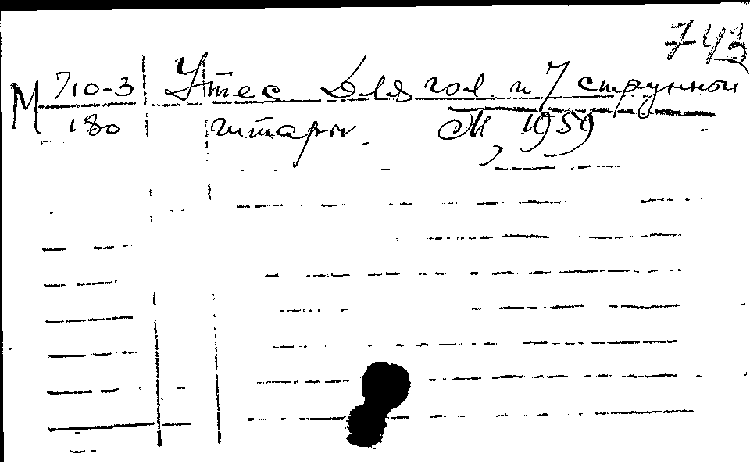 743
М 710-3 Утес Для гол. и 7 струнной
180 гитары. М, 1959